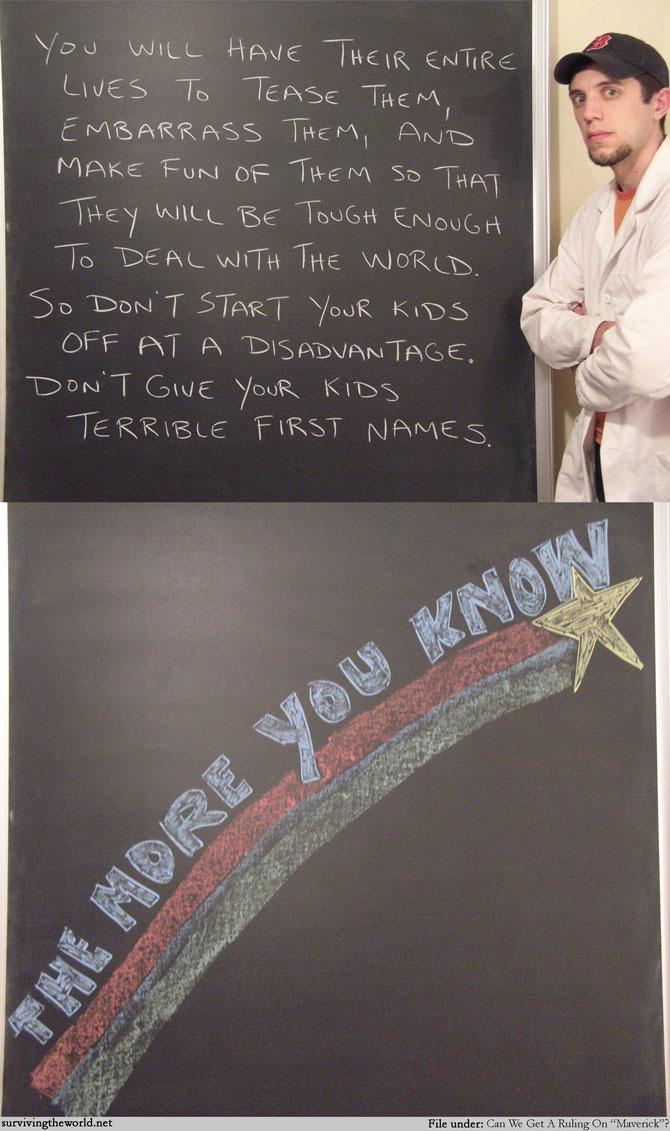 YOU WILL HAVE THEIR ENTIRE
LIVES TO TEASE THEM,
EMBARRASS THEM, AND
MAKE FUN OF THEM SO THAT
THEY WILL BE TOUGH ENOUGH
TO DEAL WITH THE WORLD.
SO DON'T START YOUR KIDS
OFF AT A DISADVANTAGE.
DON'T GIVE YOUR KIDS
TERRIBLE FIRST NAMES.
B
THE MORE YOU KNOW
survivingtheworld.net
File under: Can We Get A Ruling On "Maverick"?